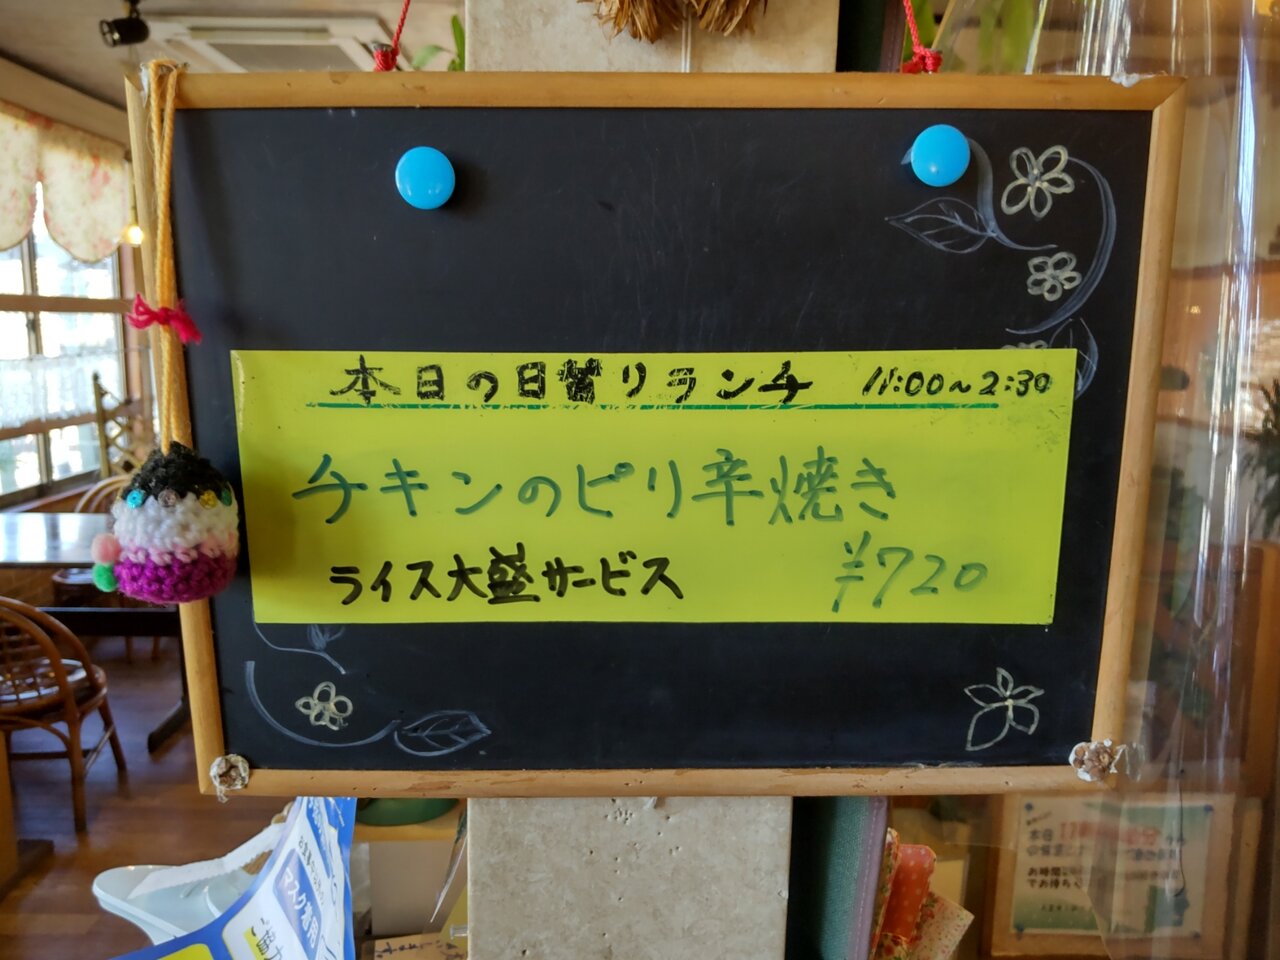 本日の日替りランチ 11:00～2:30
チキンのピリ辛焼き
ライス大盛サービス ¥720
マスク着用
ご協力
本日
お時間
でお待ち